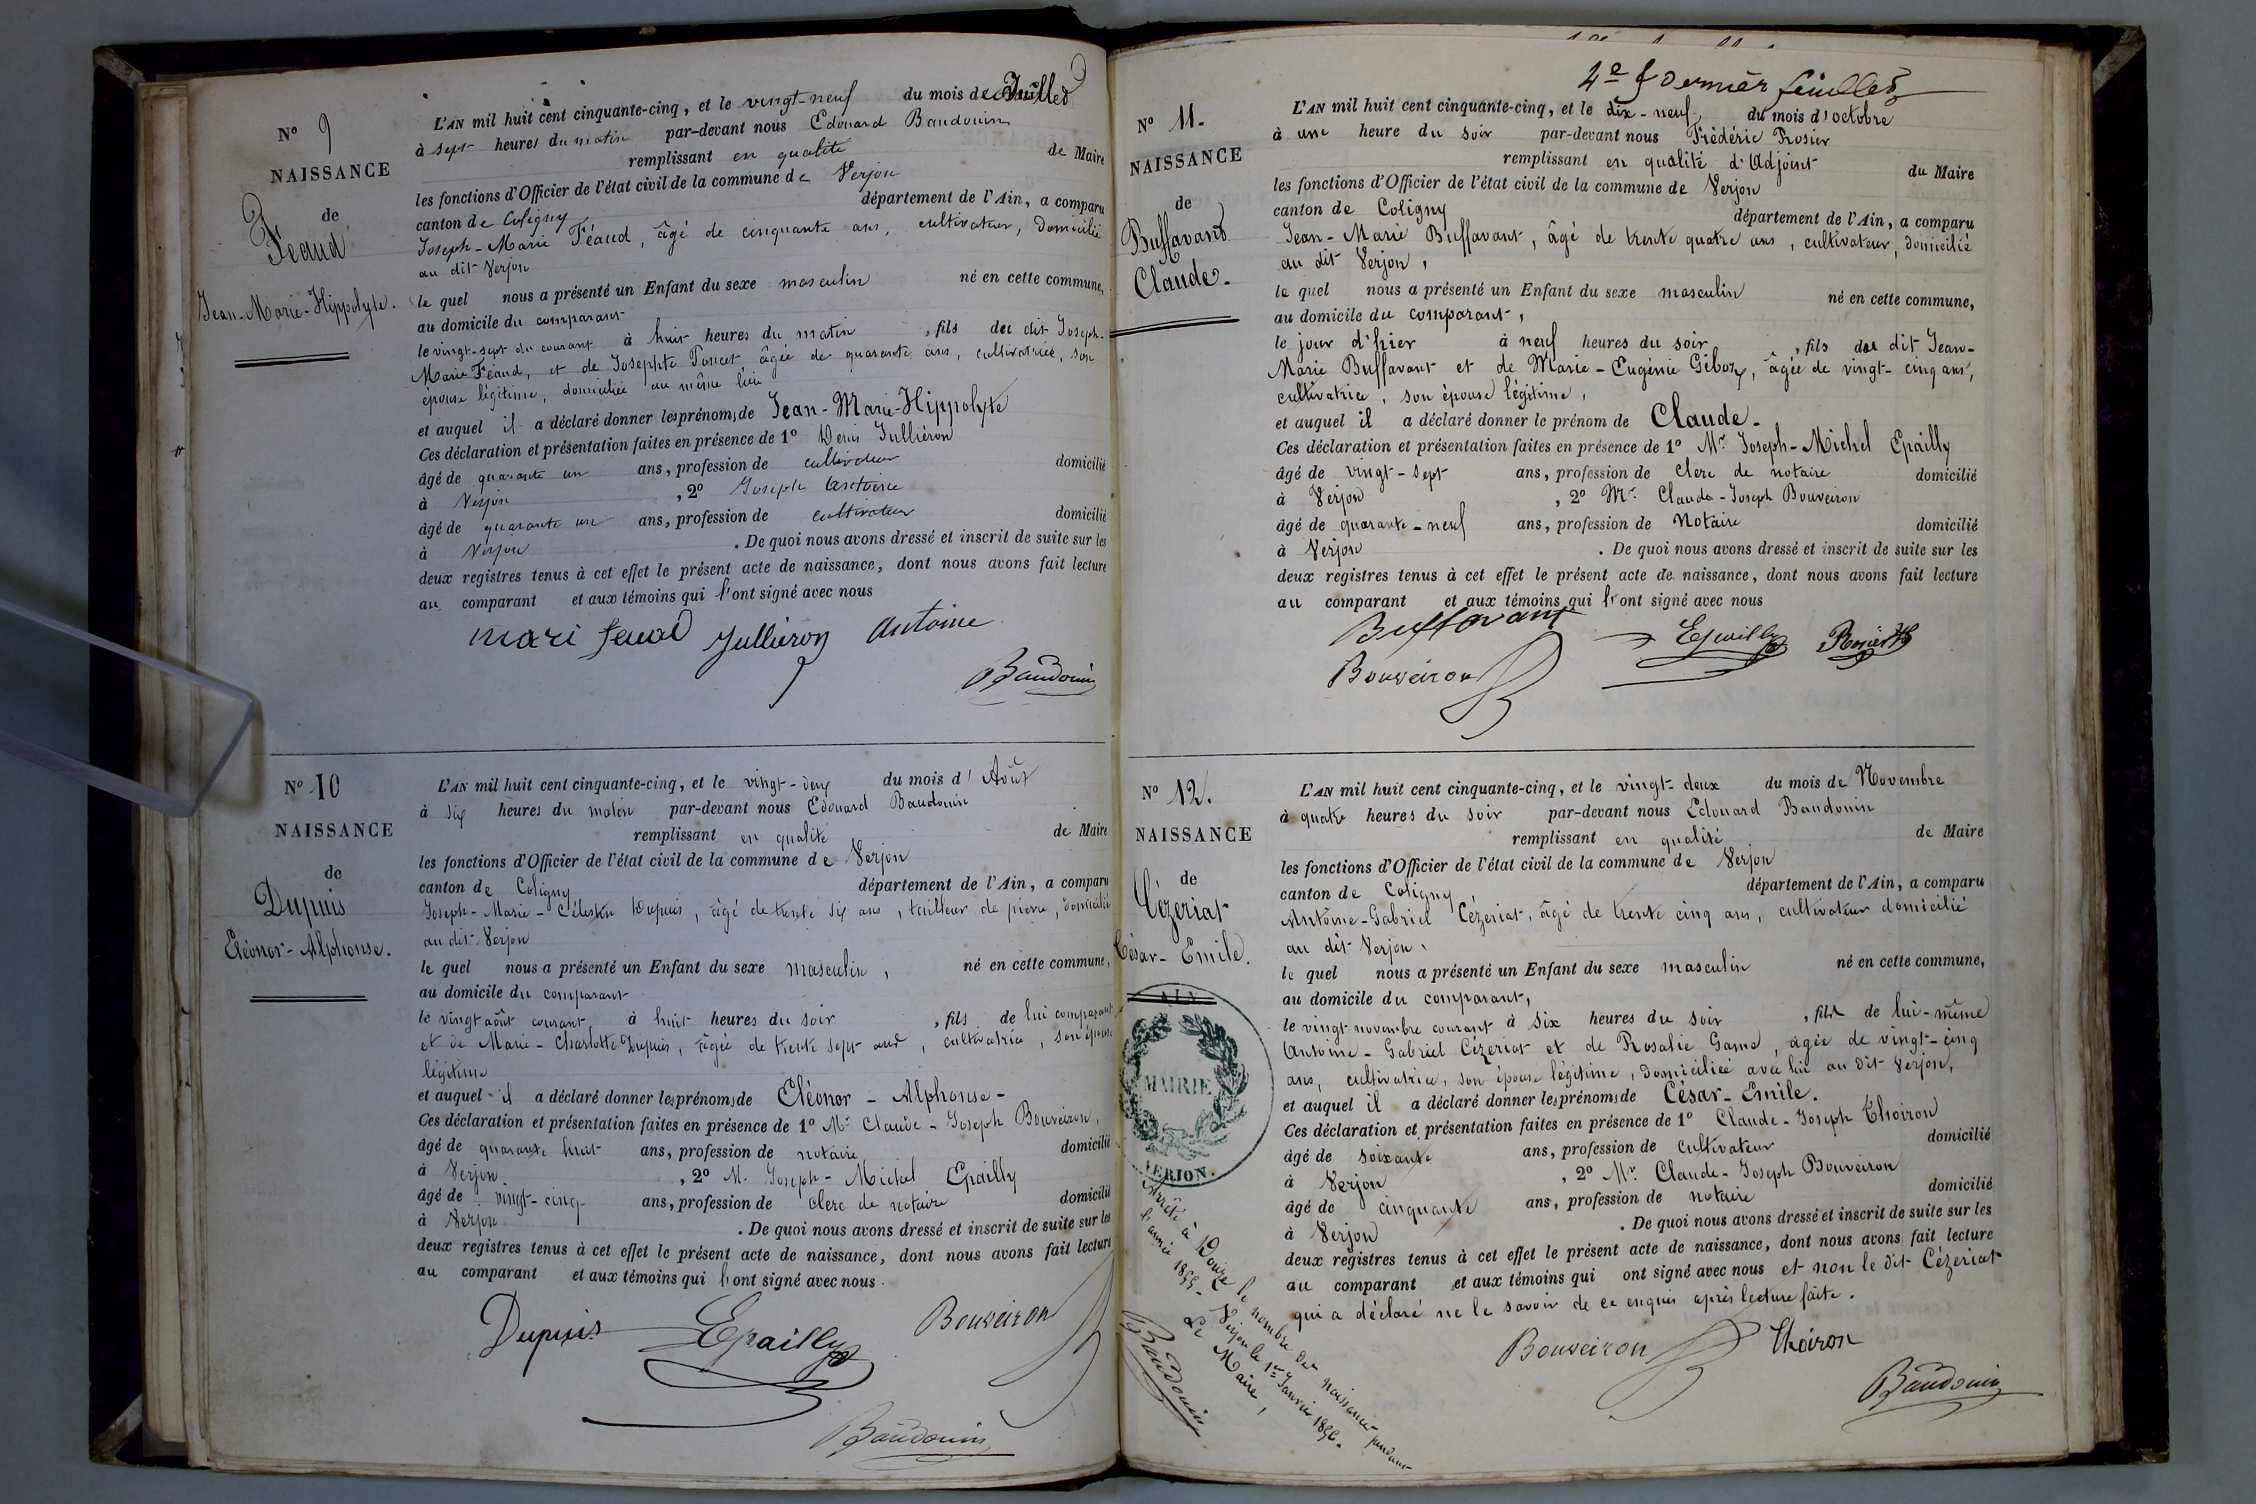 N° 9
NAISSANCE
de
Féaud
Jean-Marie-Hippolyte.
L'AN mil huit cent cinquante-cinq, et le vingt-neuf du mois de Juillet
à sept heures du matin par-devant nous Edouard Baudouin
remplissant en qualité de Maire
les fonctions d'Officier de l'état civil de la commune de Verjon
canton de Coligny département de l'Ain, a comparu
Joseph-Marie Féaud, âgé de cinquante ans, cultivateur, domicilié
au dit Verjon
le quel nous a présenté un Enfant du sexe masculin né en cette commune,
au domicile du comparant
le vingt-sept du courant à huit heures du matin, fils du dit Joseph-
Marie Féaud, et de Josephte Poncet, âgée de quarante ans, cultivatrice, son
épouse légitime, domiciliée au même lieu
et auquel il a déclaré donner les prénoms de Jean-Marie-Hippolyte
Ces déclaration et présentation faites en présence de 1° Denis Julliéron
âgé de quarante un ans, profession de cultivateur domicilié
à Verjon, 2° Joseph Antoine
âgé de quarante un ans, profession de cultivateur domicilié
à Verjon. De quoi nous avons dressé et inscrit de suite sur les
deux registres tenus à cet effet le présent acte de naissance, dont nous avons fait lecture
au comparant et aux témoins qui l'ont signé avec nous
mari feaud Julliéron Antoine
Baudouin
N° 10
NAISSANCE
de
Dupuis
Eléonor-Alphonse.
L'AN mil huit cent cinquante-cinq, et le vingt-deux du mois d'Août
à six heures du matin par-devant nous Edouard Baudouin
remplissant en qualité de Maire
les fonctions d'Officier de l'état civil de la commune de Verjon
canton de Coligny département de l'Ain, a comparu
Joseph-Marie-Célestin Dupuis, âgé de trente six ans, tailleur de pierre, domicilié
au dit Verjon
le quel nous a présenté un Enfant du sexe masculin, né en cette commune,
au domicile du comparant
le vingt août courant à huit heures du soir, fils de lui comparant
et de Marie-Charlotte Dupuis, âgée de trente sept ans, cultivatrice, son épouse
légitime
et auquel il a déclaré donner les prénoms de Eléonor-Alphonse-
Ces déclaration et présentation faites en présence de 1° Mr Claude-Joseph Bouveiron,
âgé de quarante huit ans, profession de notaire domicilié
à Verjon, 2° M. Joseph-Michel Epailly
âgé de vingt-cinq ans, profession de clerc de notaire domicilié
à Verjon. De quoi nous avons dressé et inscrit de suite sur les
deux registres tenus à cet effet le présent acte de naissance, dont nous avons fait lecture
au comparant et aux témoins qui l'ont signé avec nous.
Dupuis Epailly Bouveiron
Baudouin
4e & dernier feuillet
N° 11.
NAISSANCE
de
Buffavant
Claude.
L'AN mil huit cent cinquante-cinq, et le dix-neuf du mois d'octobre
à une heure du soir par-devant nous Frédéric Rosier
remplissant en qualité d'Adjoint du Maire
les fonctions d'Officier de l'état civil de la commune de Verjon
canton de Coligny département de l'Ain, a comparu
Jean-Marie Buffavant, âgé de trente quatre ans, cultivateur, domicilié
au dit Verjon,
le quel nous a présenté un Enfant du sexe masculin né en cette commune,
au domicile du comparant,
le jour d'hier à neuf heures du soir, fils du dit Jean-
Marie Buffavant et de Marie-Eugénie Giboz, âgée de vingt-cinq ans,
cultivatrice, son épouse légitime,
et auquel il a déclaré donner le prénom de Claude.
Ces déclaration et présentation faites en présence de 1° Mr Joseph-Michel Epailly
âgé de vingt-sept ans, profession de clerc de notaire domicilié
à Verjon, 2° Mr. Claude-Joseph Bouveiron
âgé de quarante-neuf ans, profession de Notaire domicilié
à Verjon. De quoi nous avons dressé et inscrit de suite sur les
deux registres tenus à cet effet le présent acte de naissance, dont nous avons fait lecture
au comparant et aux témoins qui l'ont signé avec nous
Buffavant Epailly Rosier
Bouveiron
N° 12.
NAISSANCE
de
Cézeriat
César-Emile.
L'AN mil huit cent cinquante-cinq, et le vingt-deux du mois de Novembre
à quatre heures du soir par-devant nous Edouard Baudouin
remplissant en qualité de Maire
les fonctions d'Officier de l'état civil de la commune de Verjon
canton de Coligny département de l'Ain, a comparu
Antoine-Gabriel Cézeriat, âgé de trente cinq ans, cultivateur domicilié
au dit Verjon,
le quel nous a présenté un Enfant du sexe masculin né en cette commune,
au domicile du comparant,
le vingt novembre courant à six heures du soir, fils de lui-même
Antoine-Gabriel Cézeriat et de Rosalie Game, âgée de vingt-cinq
ans, cultivatrice, son épouse légitime, domiciliée avec lui au dit Verjon,
et auquel il a déclaré donner les prénoms de César-Emile.
Ces déclaration et présentation faites en présence de 1° Claude-Joseph Thoiron
âgé de soixante ans, profession de cultivateur domicilié
à Verjon, 2° Mr. Claude-Joseph Bouveiron
âgé de cinquante ans, profession de notaire domicilié
à Verjon. De quoi nous avons dressé et inscrit de suite sur les
deux registres tenus à cet effet le présent acte de naissance, dont nous avons fait lecture
au comparant et aux témoins qui ont signé avec nous et non le dit Cézeriat
qui a déclaré ne le savoir de ce enquis après lecture faite.
Bouveiron Thoiron
Baudouin
AIN
MAIRIE
VERJON.
Arrêté à Douze le nombre des naissances pendant
l'année 1855. Verjon le 1er Janvier 1856.
Le Maire,
Baudouin